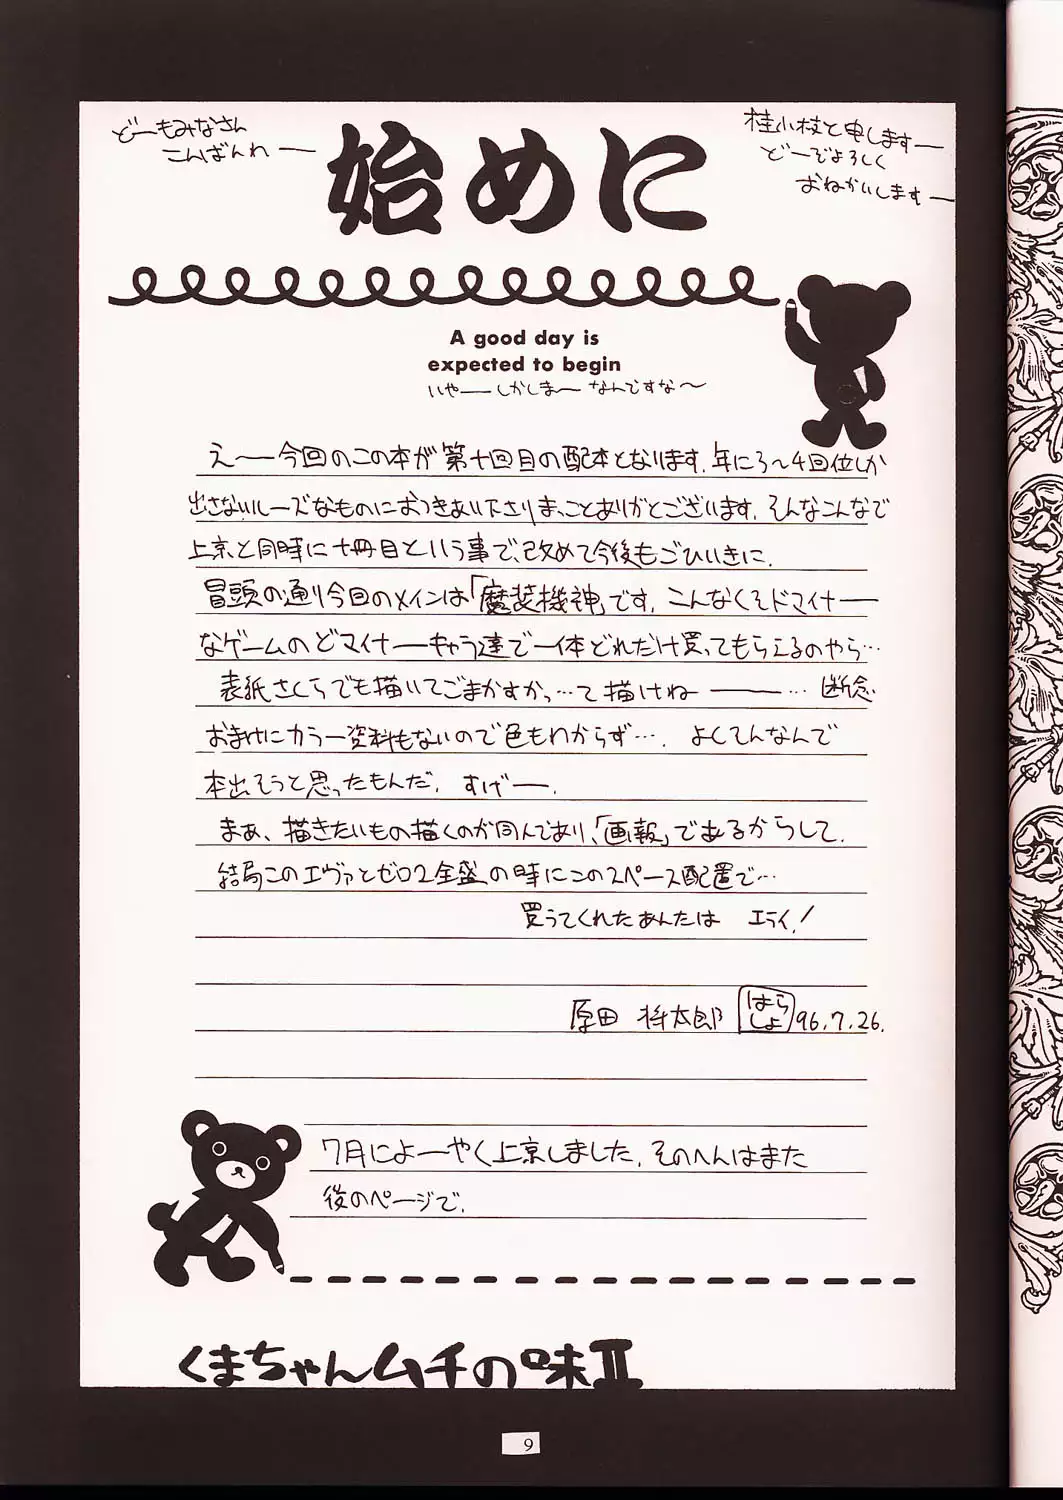 どーもみなさん
こんばんわー
始めに
桂小枝と申しますー
どーぞよろしく
おねがいしますー
A good day is
expected to begin
いやーしかしま〜なんですな〜
え〜今回のこの本が第十回目の配本となります。年に3〜4回位しか
出さないルーズなものにおつきあい下さりまっことありがとございます。そんなこんなで
上京と同時に十冊目という事で、改めて今後もごひいきに。
冒頭の通り今回のメインは「魔装機神」です。こんなくそドマイナー
なゲームのどマイナーキャラ達で一体どれだけ買ってもらえるのやら…
表紙さくらでも描いてごまかすかっ…て描けねーー… 断念
おまけにカラー資料もないので色もわからず…. よくてんなんで
本出そうと思ったもんだ。すげー.
まぁ、描きたいもの描くのが同人であり、「画報」であるからして.
結局このエヴァとゼロ2全盛の時にこのスペース配置で…
買うてくれたあんたは エライ!
原田 将太郎 はらしょ 96.7.26.
7月によーやく上京しました。そのへんはまた
後のページで.
くまちゃんムチの味II
9